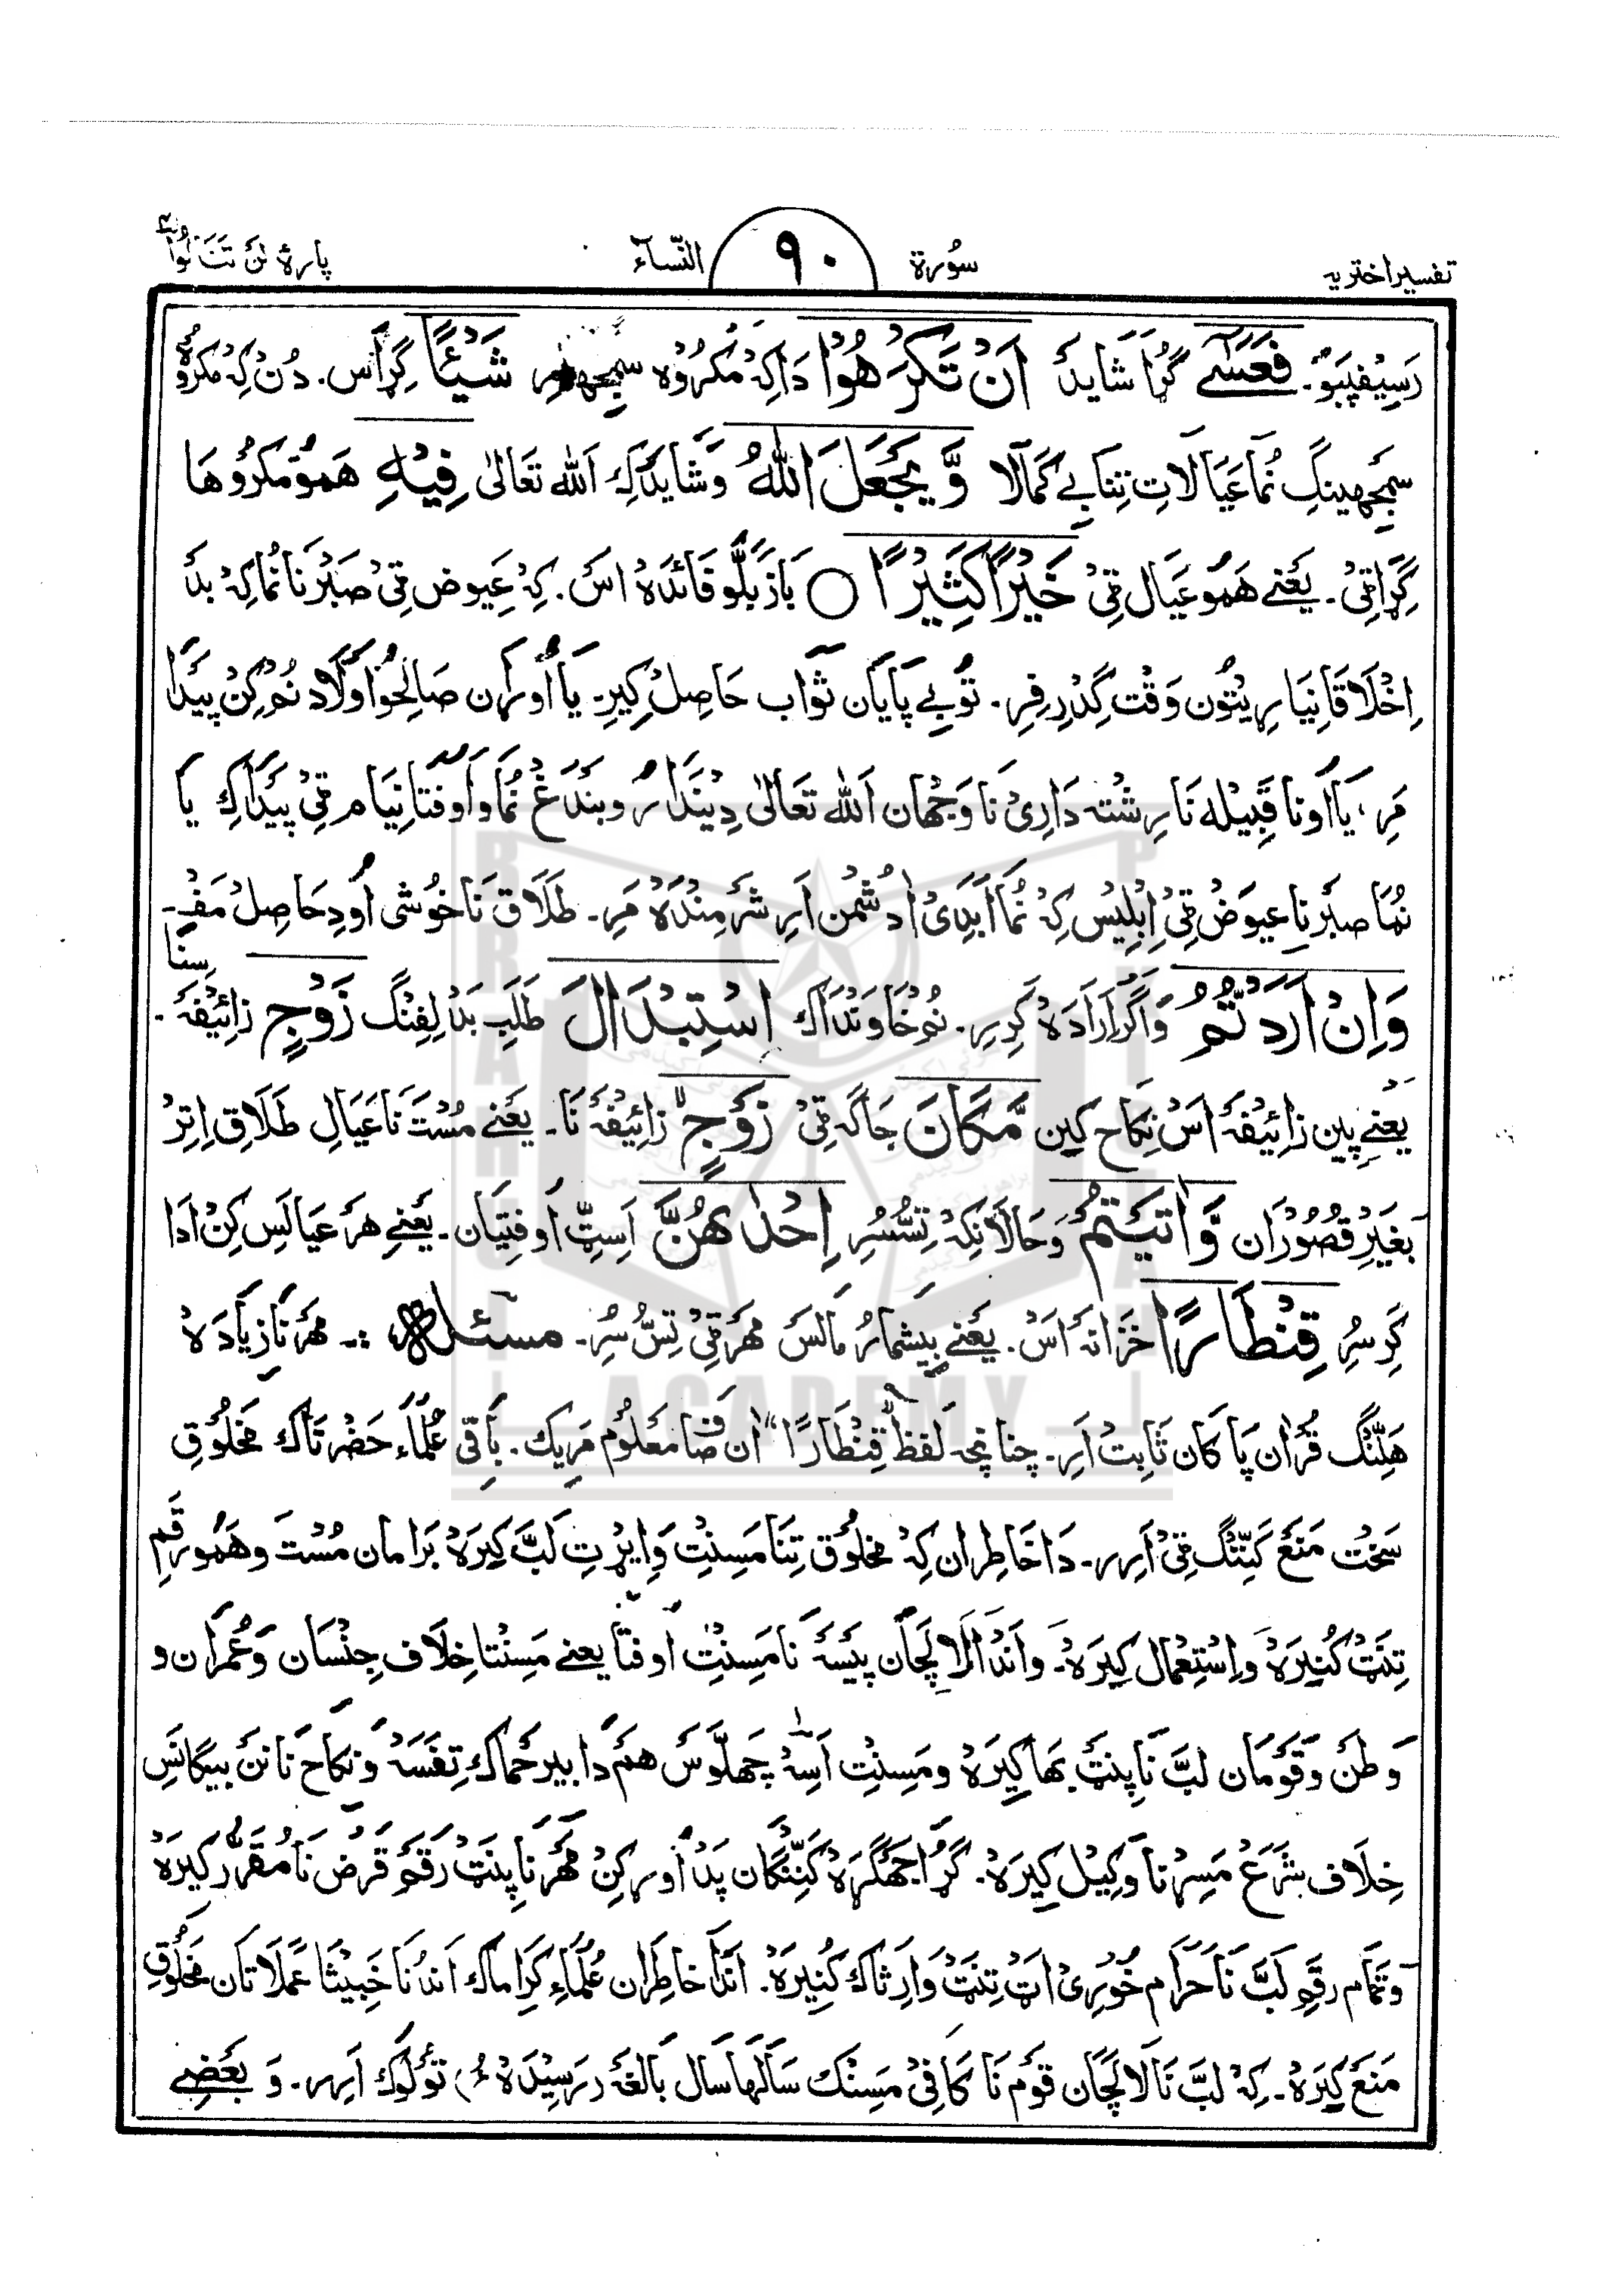 تفسیر اختریہ سُورۃ ۹۰ النّسآء پارہٴ لَنْ تَنَالُوا ۴
رَسِیفپبَو۔ فَعَسٰٓے گُڑا شایدَ اَنْ تَکْرَھُوْا دَاکِہْ مَکْرُوْہ سمجھر شَیْئًا گِڑاَس۔ دُنْ کِہْ مَکرُوْہ
سمجِھینگِ نُمَا عَیَالَاتِ تِنَابے کَمَالَا وَّ یَجْعَلَ اللہُ وَشَایدَکِ اَللہ تَعَالیٰ فِیْہِ ھَمُوْ مَکرُوْھَا
گِڑاقِیْ۔ یَعْنے ھَمُوْ عَیَال قِیْ خَیْرًا کَثِیْرًا ○ بَاز بَلُّو فَائدَہ اَسْ۔ کِہْ عِیوض قِیْ صَبْرْ نَا نُمَا کِہْ بدَ
اِخْلَاقَا نِیَارِیْتُون وَقْت گِدْرِفِرِ۔ تَوبے پَایَان ثَوَاب حَاصِلْ کِیرِ۔ یَا اُوْرَان صَالِحُوْ اَولَاد نُم کِنْ پَیْدَا
مَرِ، یَا اَونَا قَبِیْلہ نَا رِشْتَہ دَارِیْ نَا وَجْھَان اَللہ تَعَالیٰ دِیْندَار و بندَغْ نُمَا وَ اَوفْتَا نِیَام قِیْ پیَدَاکِ یَا
نُمَا صبْر نَا عِیوَضْ قِیْ اِبلِیْس کِہْ نُمَا اَبَدِیْ اُ دُشْمن اَرِ شَرْمِنْدَہْ مَرِ۔ طَلَاق نَا خُوْشی اُودِ حَاصِلْ مَفْ۔
وَاِنْ اَرَدْتُّمُ وَ اگر اِرَادَہْ کَرِیرِ۔ نُم خَاوَنْدَاک اسْتِبْدَالَ طَلَبِ بَدلِفِنْگ زَوْجٍ زَائِیْفَہ سِنَا۔
یَعْنے پِین زَائِیْفَہ اَسْ نِکَاح کِین مَّکَانَ جَاگَہ قِیْ زَوْجٍ زَائِیْفَہ نَا۔ یَعْنے مُسْت نَا عَیَالِ طَلَاق اِتِرْ
بَغَیْر قُصُوْرَان وَّ اٰتَیْتُمْ وَ حَالَانکہْ تِسُّسُرِ اِحْدٰھُنَّ اَسِٹ اَوفْتِیَان۔ یَعْنے ھَر عَیَالَس کِنْ اَدَا
کَرِسُرِ قِنْطَارًا خَزَانہَ اَسْ۔ یَعْنے بِیْشمارْ مَالَس مَھْر قِیْ تِسُّ سُرِ۔ مسئلہ :۔ مَھْر نَا زِیَادَہ
ھَلِّنْگ قُرْاٰن پَاکَان ثَابِتْ اَرِ۔ چنَانچہ لَفظ "قِنْطَارًا" اَن صَفا مَعلُوْم مَرِیک۔ بَاقی عُلَمَاء حَضْرَتاک مَخلُوْقِ
سَخْت مَنْعَ کَنِّنْگ قِیْ اَرِر۔ دَا خَاطِرَان کِہْ مَخلُوْق تِنَا مَسِنْتِ وَ اِیڑْتِ لَبَّ کِیرَہ بَرامَان مُسْت وَ ھَمُو رَقَم
تِنَتْ کُنِیرَہْ وَ اِسْتِعْمَال کِیرَہْ۔ وَ اَنْدَا لَالَچَان پَیْسَہ نَا مَسِنْتِ اَوفتَا یعنے مَسِنتَا خِلَاف جِنْسَان وَ عُمْرَان وَ
وَطَنْ وَ قَوْمَان لَبَّ نَا پِنٹ بَھَا کِیرَہْ وَ مَسِنْتِ اَسِہْ چَھلَّوْس ھم دَا بیرحماک تِفَسَہْ وَ نِکَاح نَا نَنْ بیگانَس
خِلَاف شَرَعْ مَسِڑنَا وَکِیْل کِیرَہْ۔ گُڑا جَھگَڑَہ کَنِّنْگَان پَدْ اَوْر کِنْ مَھْر نَا پِنٹ رَقَم قَرْض نَا مُقَرَّرْ کِیرَہْ
وَ تَمَام رقمِ لَبَّ نَا حَرَام خُوْرِیْ اَٹ تِنَتْ وَارِثَاک کُنِیرَہْ۔ اَنْدَا خَاطِرَان عُلَمَاءِ کِرَامَاک اَنْدُنَا خَبِیْثَا عَمَلَاتَان مَخلُوْقِ
مَنْعَ کِیرَہْ۔ کِہْ لَبَّ نَا لَالَچَان قَوْم نَا کَافِیْ مَسِنْک سَالہَا سَال بَالغَہ (رَسِیْدَہْ ءُ) تَوْلُوک اَرِر۔ وَ بَعْضے